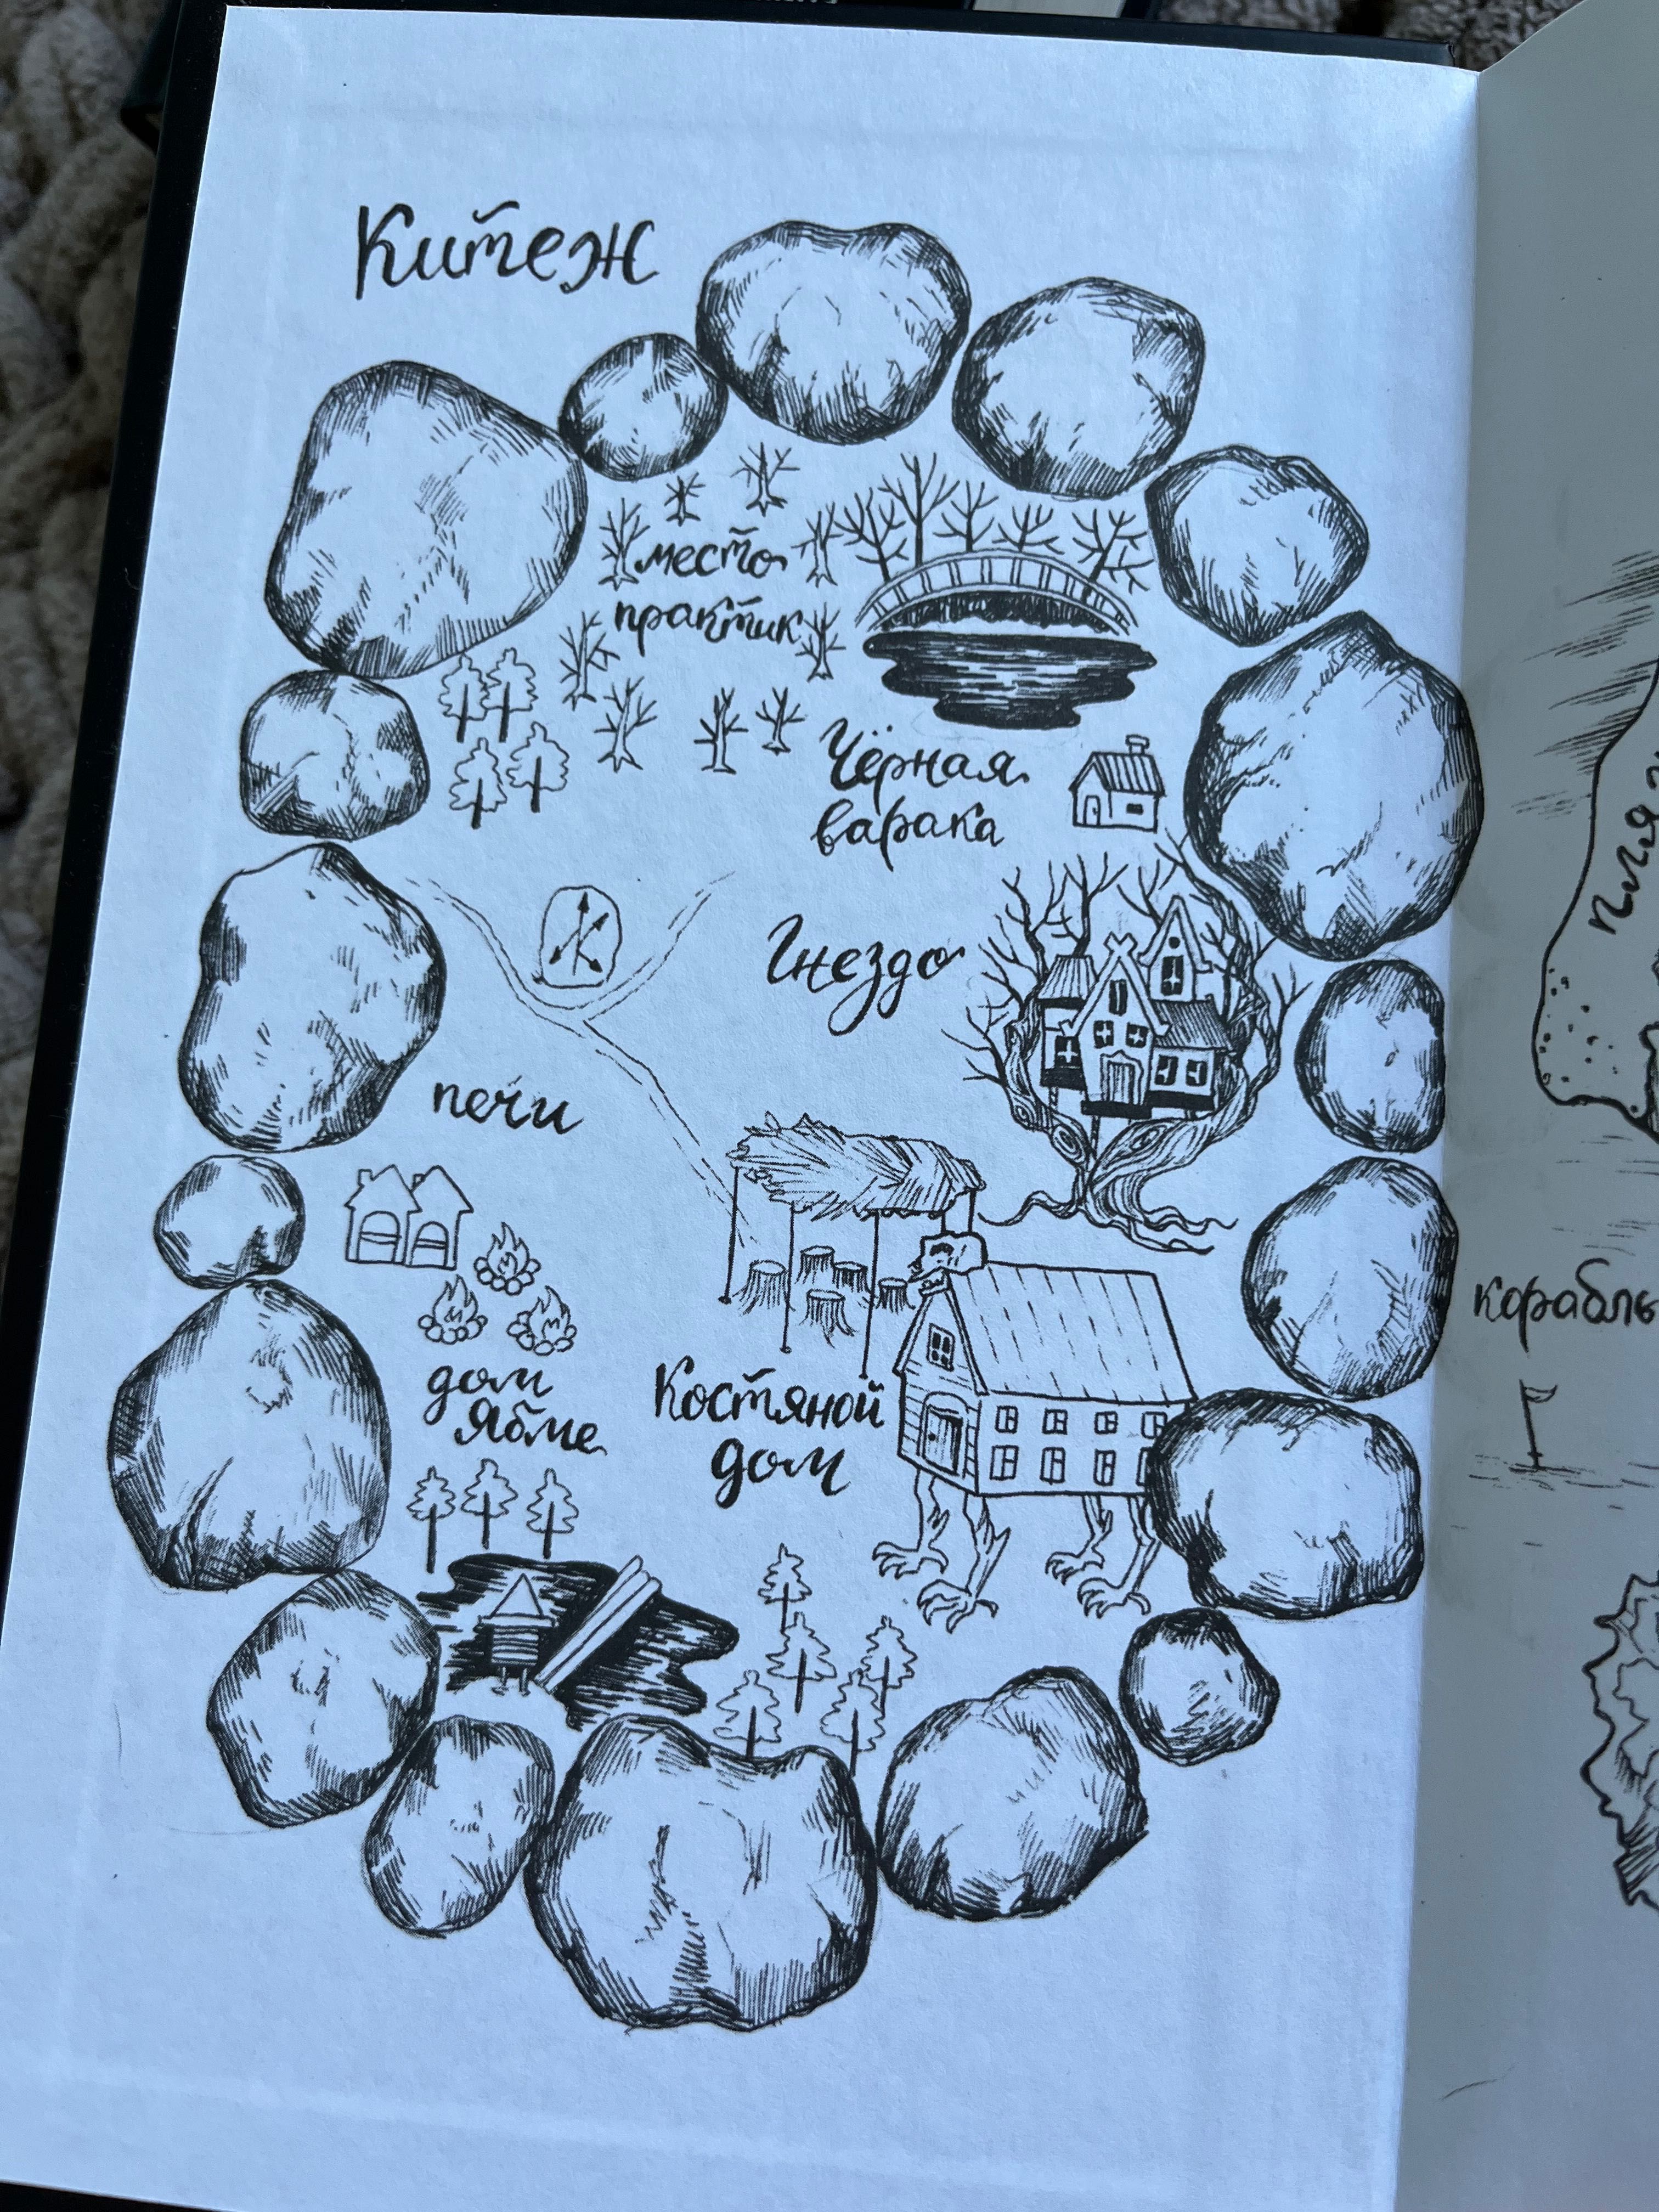 Китеж
место
практик
Чёрная
варака
К
Гнездо
печи
дом
Ябме
Костяной
дом
корабль